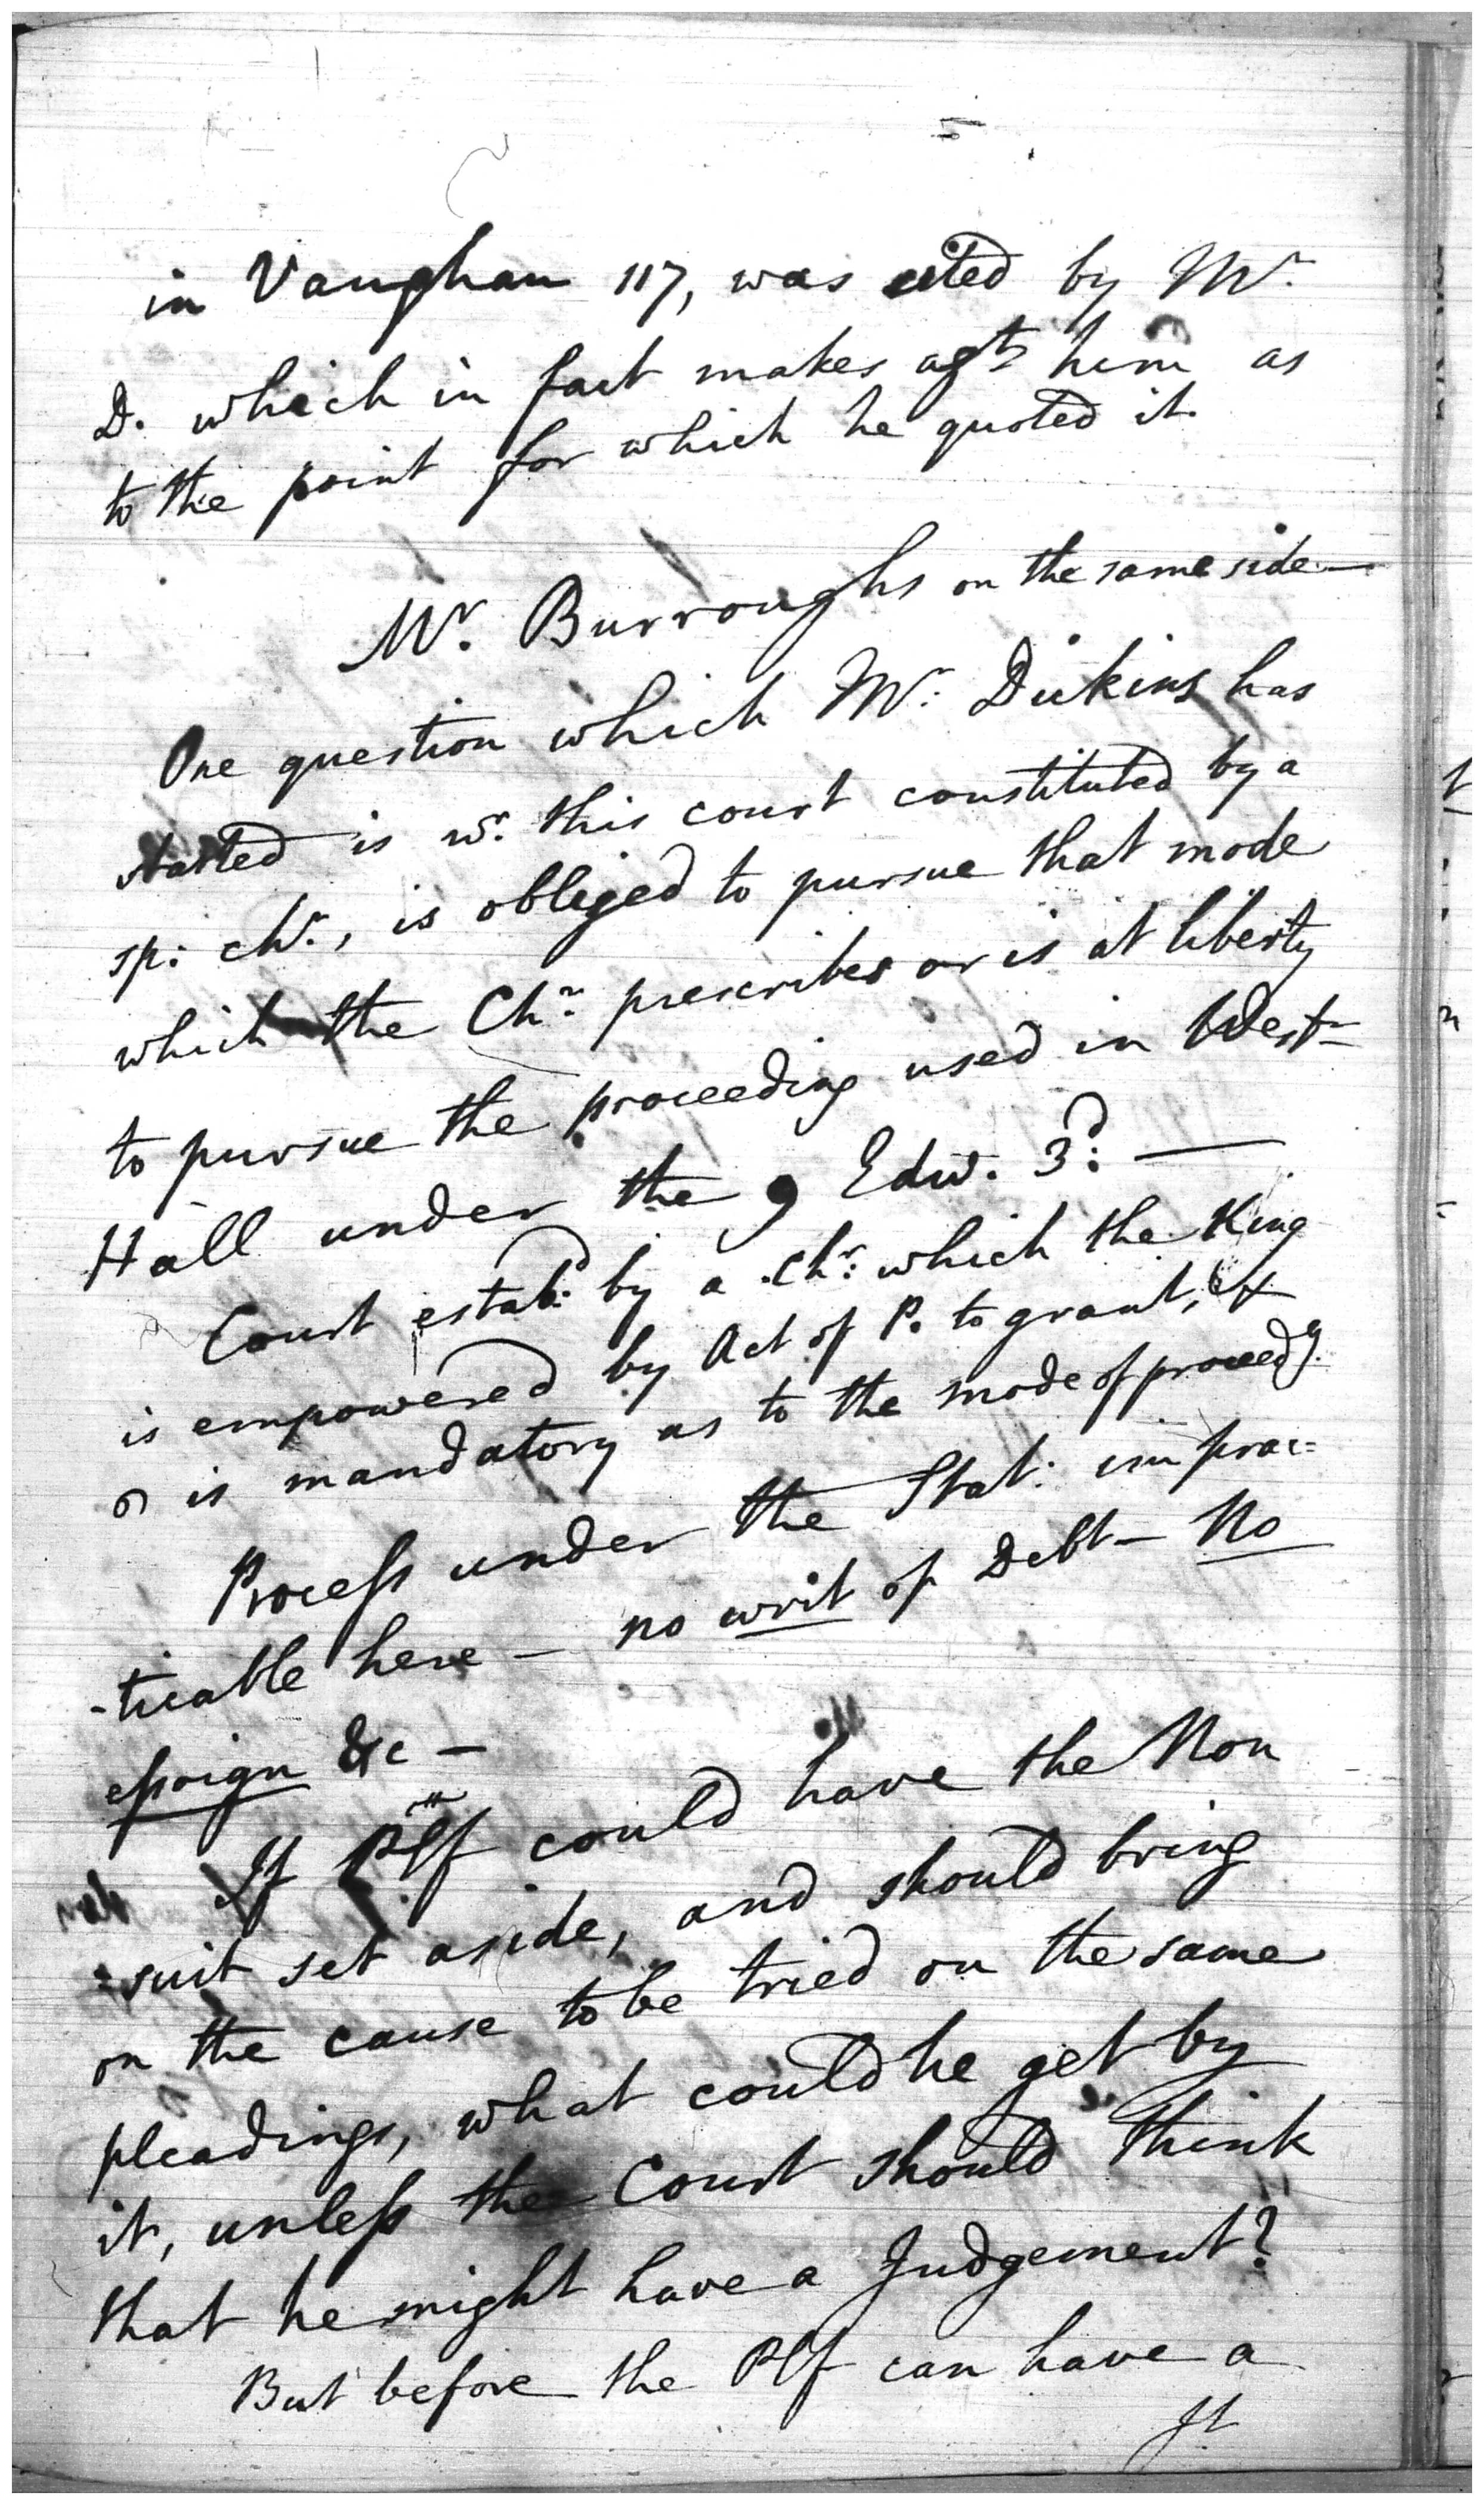 in Vaughan 117, was cited by Mr.
D. which in fact makes agt. him as
to the point for which he quoted it.
Mr. Burroughs on the same side—
One question which Mr. Dickins has
started is wr. this court constituted by a
sp: chr., is obliged to pursue that mode
which the Chr. prescribes or is at liberty
to pursue the proceeding used in West-
Hall under the 9 Edw. 3d: —
Court estabd: by a Chr: which the King
is empowered by Act of P. to grant, &
is mandatory as to the mode of proceedg.
Process under the Stat: imprac=
-ticable here — no writ of Debt — No
essoign &c —
If Plf could have the Non
=suit set aside, and should bring
on the cause to be tried on the same
pleadings, what could he get by
it, unless the Court should think
that he might have a Judgement?
But before the Plf can have a
Jt